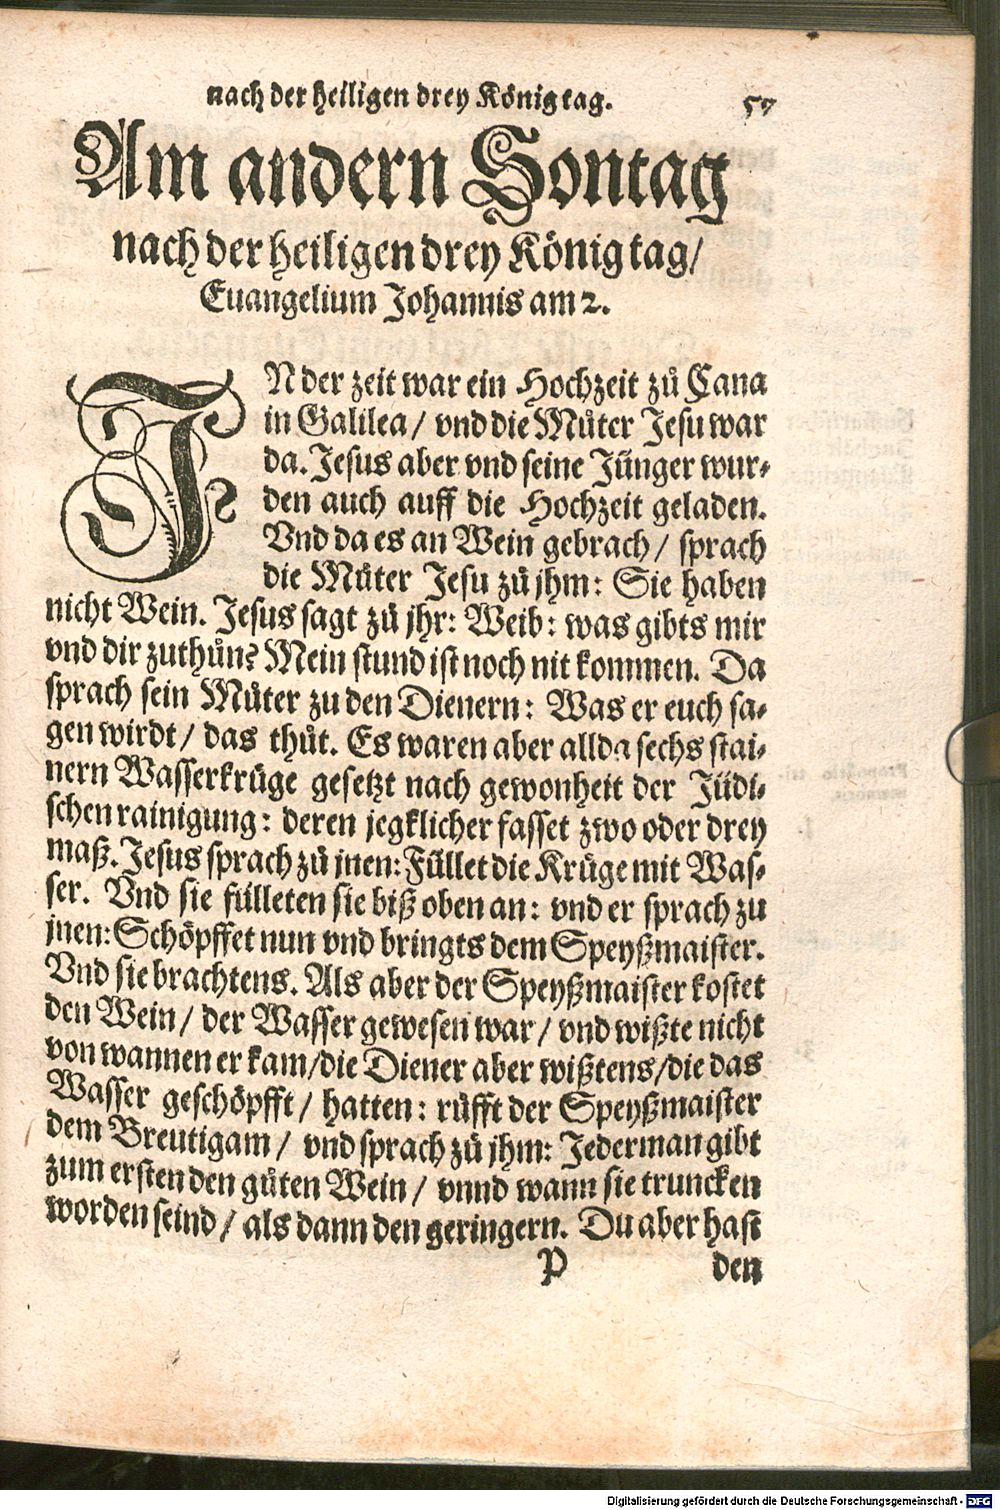 nach der heiligen drey Königtag. 57
Am andern Sontag
nach der heiligen drey Königtag/
Euangelium Johannis am 2.
IN der zeit war ein Hochzeit zů Cana
in Galilea/ vnd die Můter Jesu war
da. Jesus aber vnd seine Jünger wur-
den auch auff die Hochzeit geladen.
Vnd da es an Wein gebrach/ sprach
die Můter Jesu zů jhm: Sie haben
nicht Wein. Jesus sagt zů jhr: Weib: was gibts mir
vnd dir zuthůn? Mein stund ist noch nit kommen. Da
sprach sein Můter zu den Dienern: Was er euch sa-
gen wirdt/ das thůt. Es waren aber allda sechs stai-
nern Wasserkrüge gesetzt nach gewonheit der Jüdi-
schen rainigung: deren jegklicher fasset zwo oder drey
maß. Jesus sprach zů jnen: Füllet die Krüge mit Was-
ser. Vnd sie fülleten sie biß oben an: vnd er sprach zu
jnen: Schöpffet nun vnd bringts dem Speyßmaister.
Vnd sie brachtens. Als aber der Speyßmaister kostet
den Wein/ der Wasser gewesen war/ vnd wißte nicht
von wannen er kam/ die Diener aber wißtens/ die das
Wasser geschöpfft/ hatten: rüfft der Speyßmaister
dem Breutigam/ vnd sprach zů jhm: Jederman gibt
zum ersten den gůten Wein/ vnnd wann sie truncken
worden seind/ als dann den geringern. Du aber hast
P den
Digitalisierung gefördert durch die Deutsche Forschungsgemeinschaft - DFG